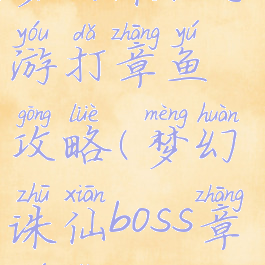 yóu dǎ zhāng yú
游打章鱼
gōng lüè mèng huàn
攻略(梦幻
zhū xiān zhāng
诛仙boss章